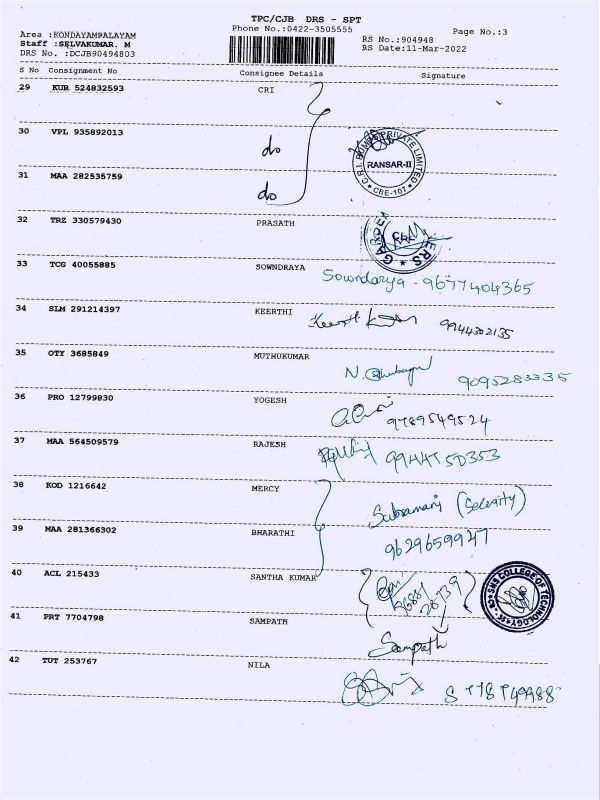 TPC/CJB DRS - SPT
Area :KONDAYAMPALAYAM Phone No.:0422-3505555 Page No.:3
Staff :SELVAKUMAR. M RS No.:904948
DRS No. :DCJB90494803 RS Date:11-Mar-2022
S No Consignment No Consignee Details Signature
29 KUR 524832593 CRI
30 VPL 935892013 do
C.R.I. PUMPS PRIVATE LIMITED
RANSAR-II
CBE-107
31 MAA 282535759 do
32 TRZ 330579430 PRASATH
33 TCG 40055885 SOWNDRAYA Sowndarya - 9677404365
34 SLM 291214397 KEERTHI Keerthi 9944302135
35 OTY 3685849 MUTHUKUMAR 9095283335
36 PRO 12799830 YOGESH 9789549524
37 MAA 564509579 RAJESH 9944750353
38 KOD 1216642 MERCY Subramani (Security)
39 MAA 281366302 BHARATHI 9629659947
40 ACL 215433 SANTHA KUMAR
SNS COLLEGE OF TECHNOLOGY
41 PRT 7704798 SAMPATH Sampath
42 TUT 253767 NILA